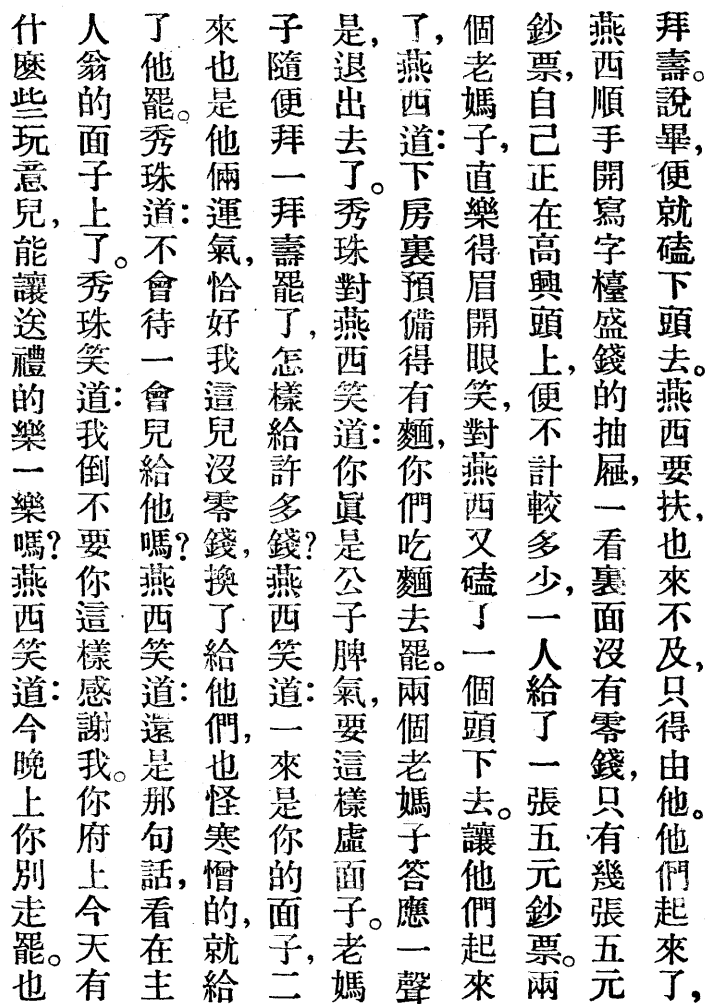 拜壽。說畢，便就磕下頭去。燕西要扶，也來不及，只得由他。他們起來了，
燕西順手開寫字檯盛錢的抽屜，一看裏面沒有零錢，只有幾張五元
鈔票，自己正在高興頭上，便不計較多少，一人給了一張五元鈔票。兩
個老媽子，直樂得眉開眼笑，對燕西又磕了一個頭下去。讓他們起來
了，燕西道：下房裏預備得有麵，你們吃麵去罷。兩個老媽子答應一聲
是，退出去了。秀珠對燕西笑道：你眞是公子脾氣，要這樣虛面子。老媽
子隨便拜一拜壽罷了，怎樣給許多錢？燕西笑道：一來是你的面子，二
來也是他倆運氣，恰好我這兒沒零錢，換了給他們，也怪寒憎的，就給
了他罷。秀珠道：不會待一會兒給他嗎？燕西笑道：還是那句話，看在主
人翁的面子上了。秀珠笑道：我倒不要你這樣感謝我。你府上今天有
什麼些玩意兒，能讓送禮的樂一樂嗎？燕西笑道：今晚上你別走罷。也